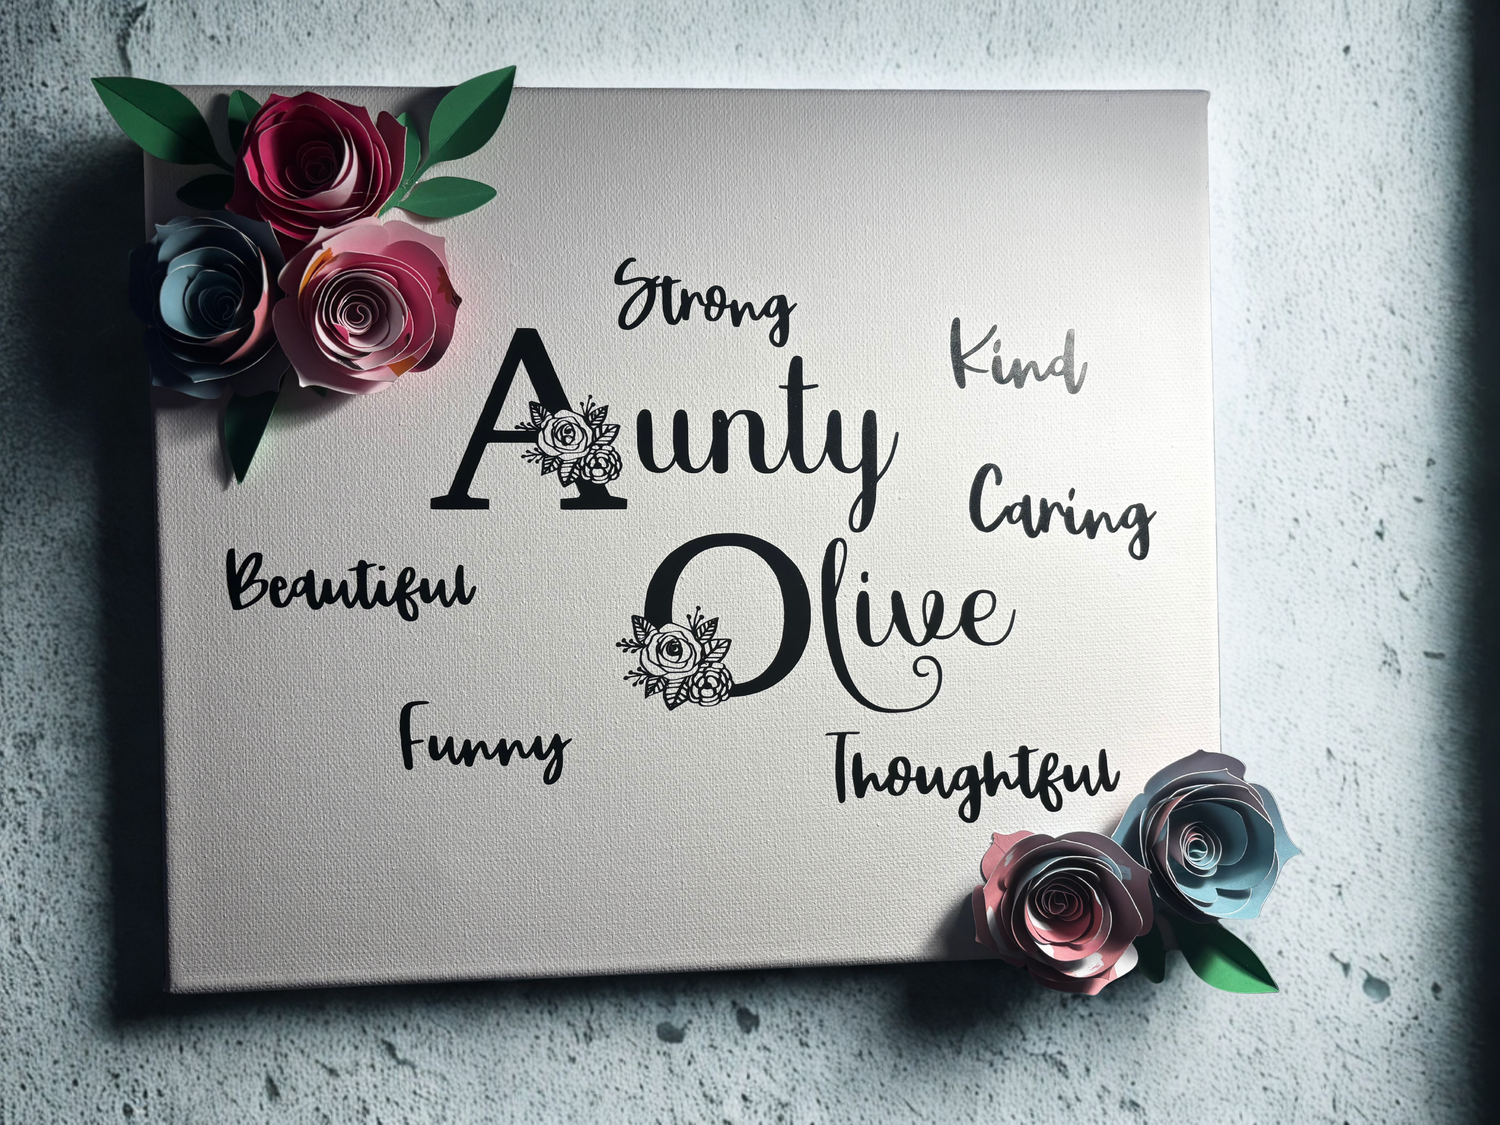 Strong
Kind
Aunty
Caring
Beautiful
Olive
Funny
Thoughtful